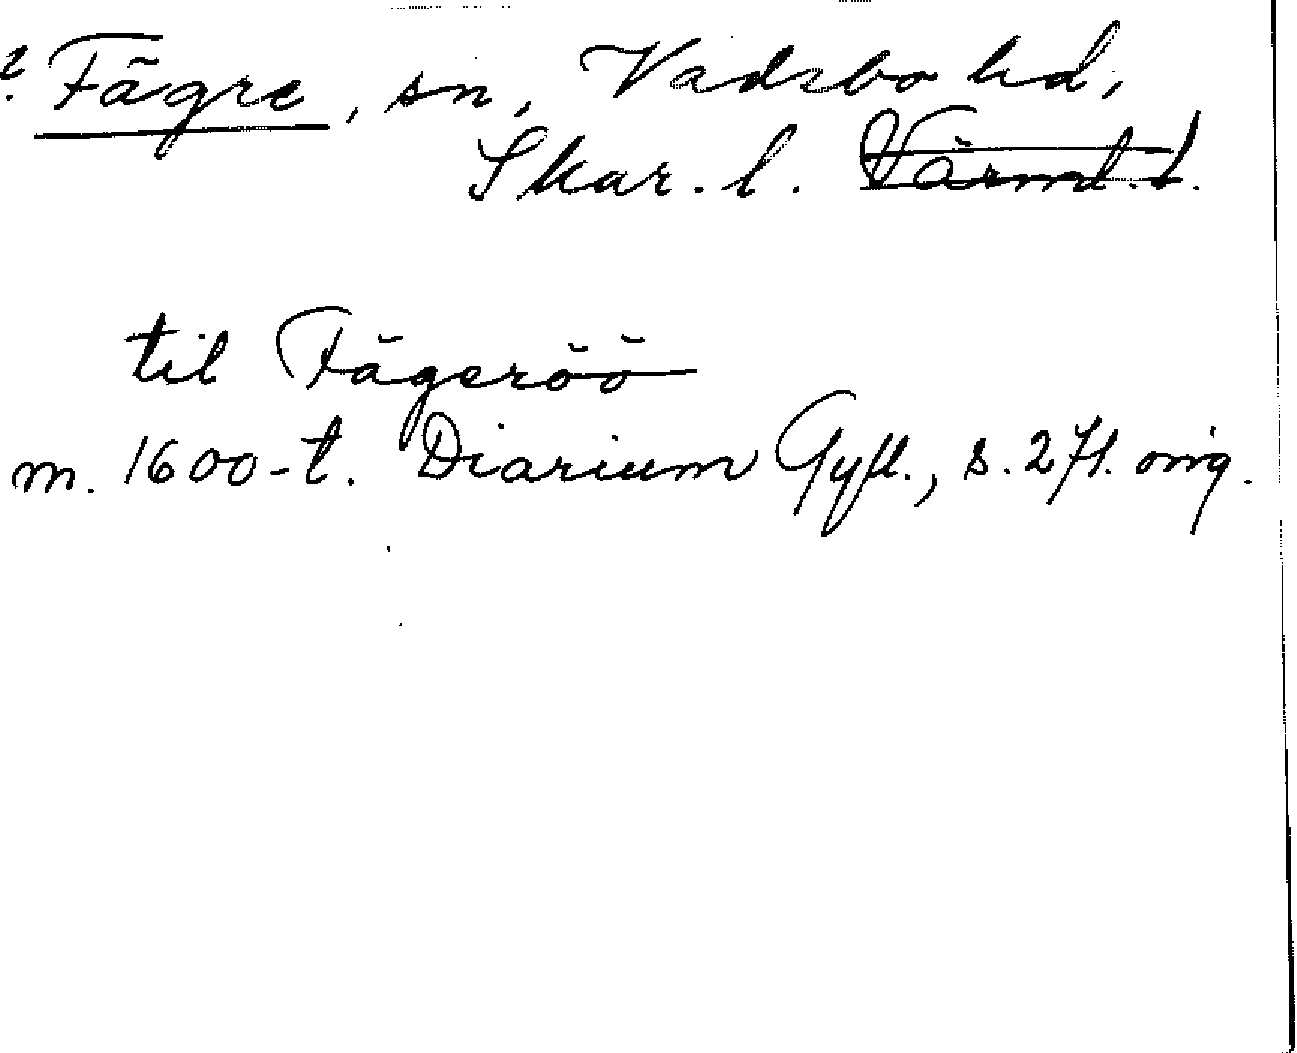 ? Fägre, sn, Vadsbo hd,
Skar. l. Värml. l.
til Fägeröö
m. 1600-t. Diarium Gyll., s. 271. orig.